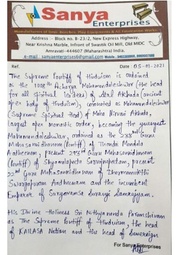 Sanya
Enterprises
Address :- Block no. B-23/2, New Express Highway,
Near Krishna Marble, Infront of Swastik Oil Mill, Old MIDC
Amravati 444607 (Maharashtra) India.
Date 05-01-2021
The Supreme Pontiff of Hinduism is ordained
as the 1008th Mahamandaleshwar (the head
for all spiritual
body of Hinduism), coronated as Mahamandaleshwar
(Supreme spiritual head) of Maha Nirvani Akhada,
largest apex monastic order, becoming the youngest
Mahamandaleshwar, ordained as the 233rd Guru
Mahasannidhanam (Pontiff) of Thondai Mandala
Aadheenam, present 293rd Guru Mahasannidhanam
(Pontiff) of Shyamalapeeta Sarvajnapeetam, present
Guru Mahasannidhanam of
Aadheenam and the incumbent
Emperor of Suryavamsa Surangi Samrajyam.
His Divine Holiness Sri Nithyananda Paramashivam
as The Supreme Pontiff of Hinduism, the head of
KAILASA Nation and the head of
For Sanya Enterprises